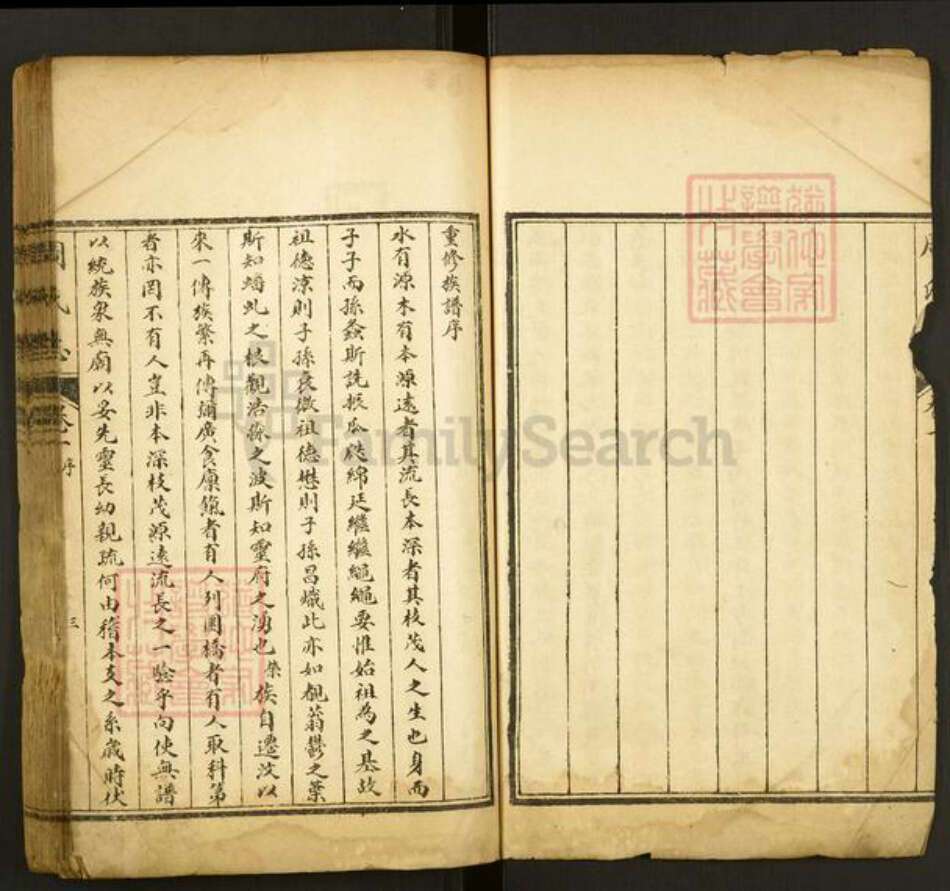 重修族譜序
水有源木有本源遠者其流長本深者其枝茂人之生也身而
子子而孫螽斯詵振瓜瓞綿延繼繼繩繩要惟始祖為之基故
祖德涼則子孫衰微祖德懋則子孫昌熾此亦如覩蓊鬱之葉
斯知蟠虬之根觀浩淼之波斯知靈府之湧也榮族自遷汶以
來一傳族繁再傳彌廣食廩餼者有人列圜橋者有人取科第
者亦罔不有人豈非本深枝茂源遠流長之一驗乎向使無譜
以統族眾無廟以妥先靈長幼親疏何由稽本支之系歲時伏
周氏志
卷一
序
三
FamilySearch